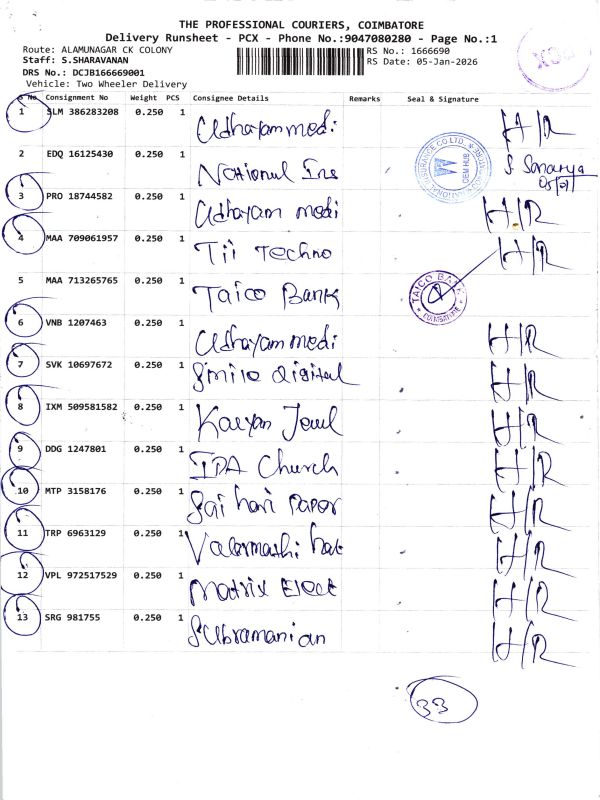 THE PROFESSIONAL COURIERS, COIMBATORE
Delivery Runsheet - PCX - Phone No.:9047080280 - Page No.:1
Route: ALAMUNAGAR CK COLONY
Staff: S.SHARAVANAN
DRS No.: DCJB166669001
Vehicle: Two Wheeler Delivery
RS No.: 1666690
RS Date: 05-Jan-2026
PCX
S No. Consignment No Weight PCS Consignee Details Remarks Seal & Signature
1 SLM 386283208 0.250 1 Udhayam medi H/R
2 EDQ 16125430 0.250 1 National Ins
3 PRO 18744582 0.250 1 Udhayam medi H/R
4 MAA 709061957 0.250 1 Tii Techno H/R
5 MAA 713265765 0.250 1 Taico Bank TAICO BANK COIMBATORE
6 VNB 1207463 0.250 1 Udhayam medi H/R
7 SVK 10697672 0.250 1 Smile digital H/R
8 IXM 509581582 0.250 1 Kalyan Jewl H/R
9 DDG 1247801 0.250 1 IPA Church H/R
10 MTP 3158176 0.250 1 Sai hari Paper H/R
11 TRP 6963129 0.250 1 H/R
12 VPL 972517529 0.250 1 Matrix Elect H/R
13 SRG 981755 0.250 1 Subramanian H/R
33